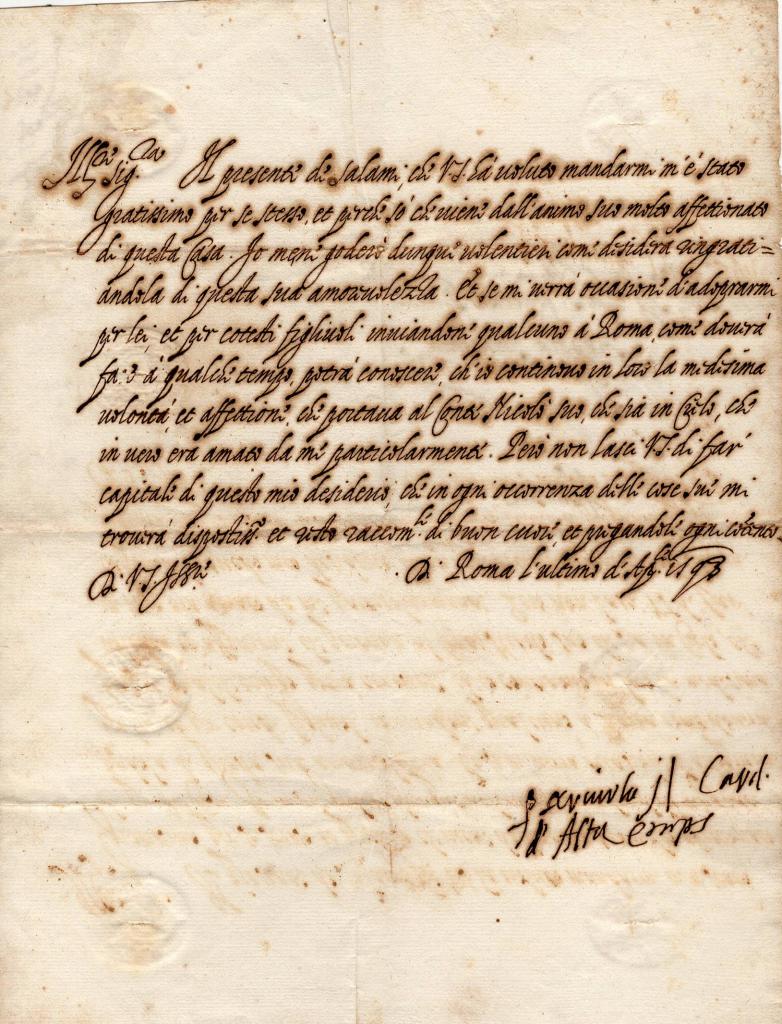 Ill.re Sig.ra Il presente de salami, che V.S. hà voluto mandarmi m'è stato
gratissimo per se stesso, et perche sò che viene dall'animo suo molto affettionato
di questa Casa. Io mene goderò dunque volentieri come desidera ringrati=
andola di questa sua amorevolezza. Et se mi verrà occasione d'adoprarmi
per lei, et per cotesti figliuoli inviandone qualcuno à Roma, come doverà
fare à qualche tempo, potrà conoscere, ch'io continovo in loro la medesima
volontà, et affettione, che portava al Conte Nicolò suo, che sia in Cielo, che
in vero era amato da me particolarmente. Però non lasci V.S. di far
capitale di questo mio desiderio, che in ogni occorrenza delle cose sue mi
troverà dispostiss.o et resto raccom.le di buon cuore, et pregandole ogni contento.
Di V.S. Ill.re Di Roma l'ultimo d'Ap.le 1593
il Card.
d'Altaemps